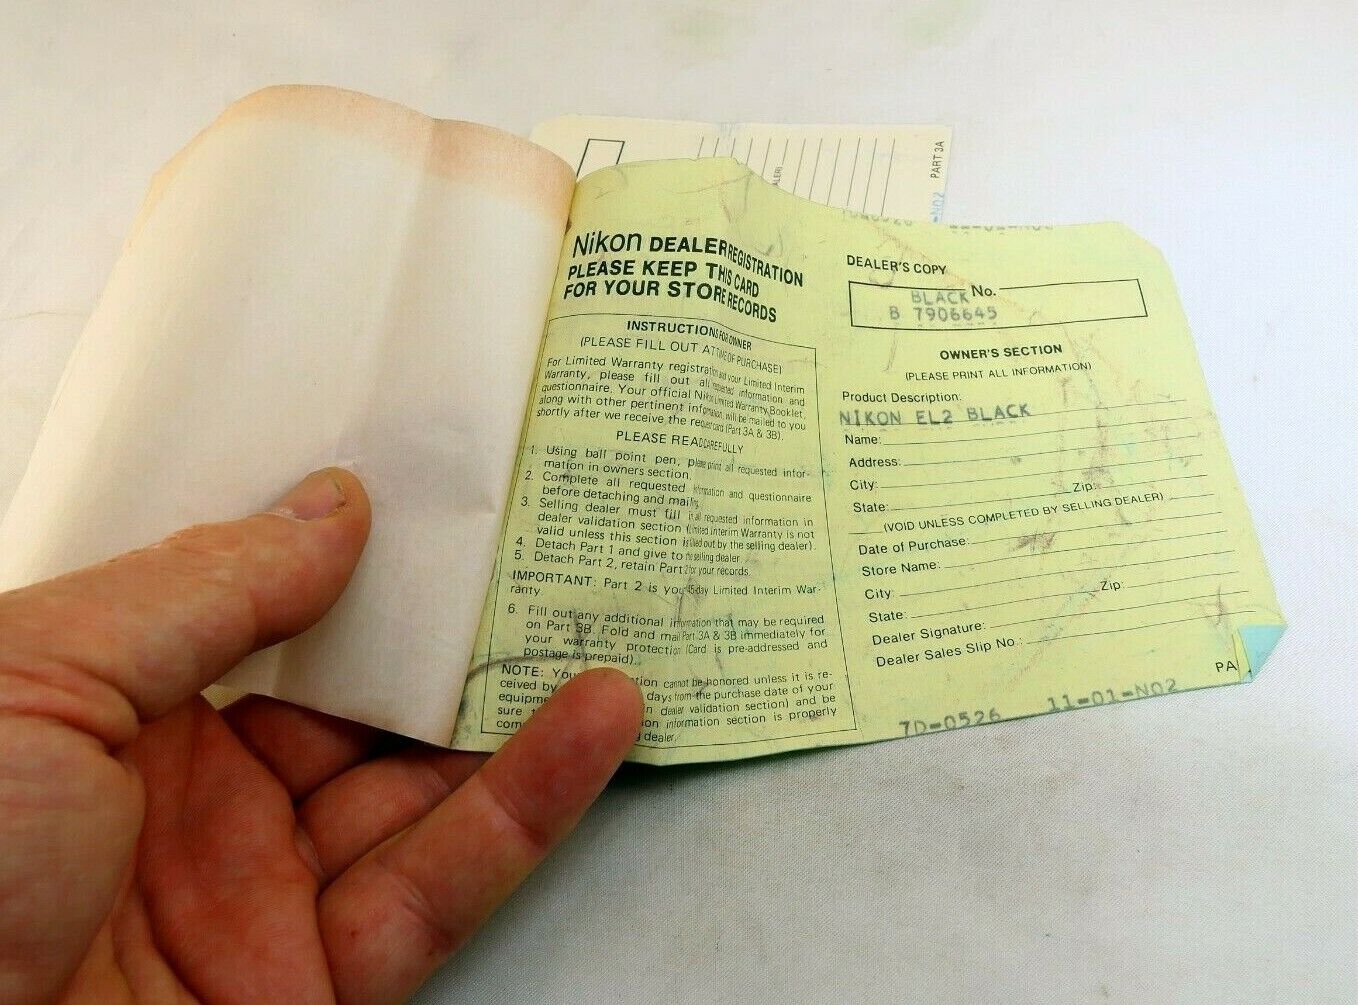 PART 3A
Nikon DEALER REGISTRATION
PLEASE KEEP THIS CARD
FOR YOUR STORE RECORDS
INSTRUCTIONS FOR OWNER
(PLEASE FILL OUT AT TIME OF PURCHASE)
For Limited Warranty registration and your Limited Interim
Warranty, please fill out all requested information and
questionnaire. Your official Nikon Limited Warranty Booklet,
along with other pertinent information, will be mailed to you
shortly after we receive the request card (Part 3A & 3B).
PLEASE READ CAREFULLY
1. Using ball point pen, please print all requested infor-
mation in owners section.
2. Complete all requested information and questionnaire
before detaching and mailing.
3. Selling dealer must fill in all requested information in
dealer validation section (Limited Interim Warranty is not
valid unless this section is filled out by the selling dealer).
4. Detach Part 1 and give to the selling dealer.
5. Detach Part 2, retain Part 2 for your records.
IMPORTANT: Part 2 is your 45-day Limited Interim War-
ranty.
6. Fill out any additional information that may be required
on Part 3B. Fold and mail Part 3A & 3B immediately for
your warranty protection (Card is pre-addressed and
postage is prepaid).
NOTE: cannot be honored unless it is re-
ceived by days from the purchase date of your
dealer validation section) and be
sure information section is properly
dealer.
DEALER'S COPY
No.
BLACK
B 7906645
OWNER'S SECTION
(PLEASE PRINT ALL INFORMATION)
Product Description:
NIKON EL2 BLACK
Name:
Address:
City: Zip:
State:
(VOID UNLESS COMPLETED BY SELLING DEALER)
Date of Purchase:
Store Name:
City: Zip:
State:
Dealer Signature:
Dealer Sales Slip No.:
PA
7D-0526 11-01-N02